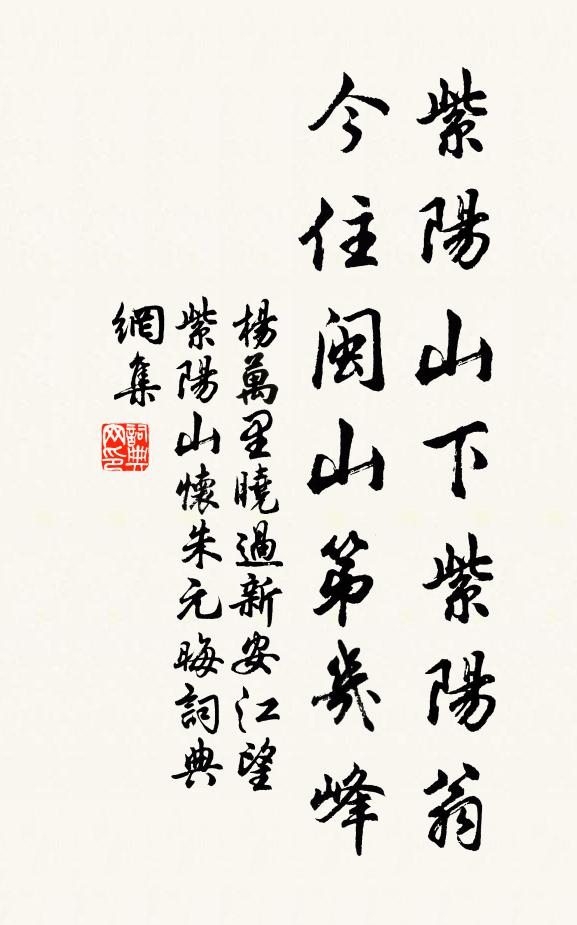 紫陽山下紫陽翁
今住閩山第幾峰
楊萬里曉過新安江望
紫陽山懷朱元晦詞典
網集
詞典網印